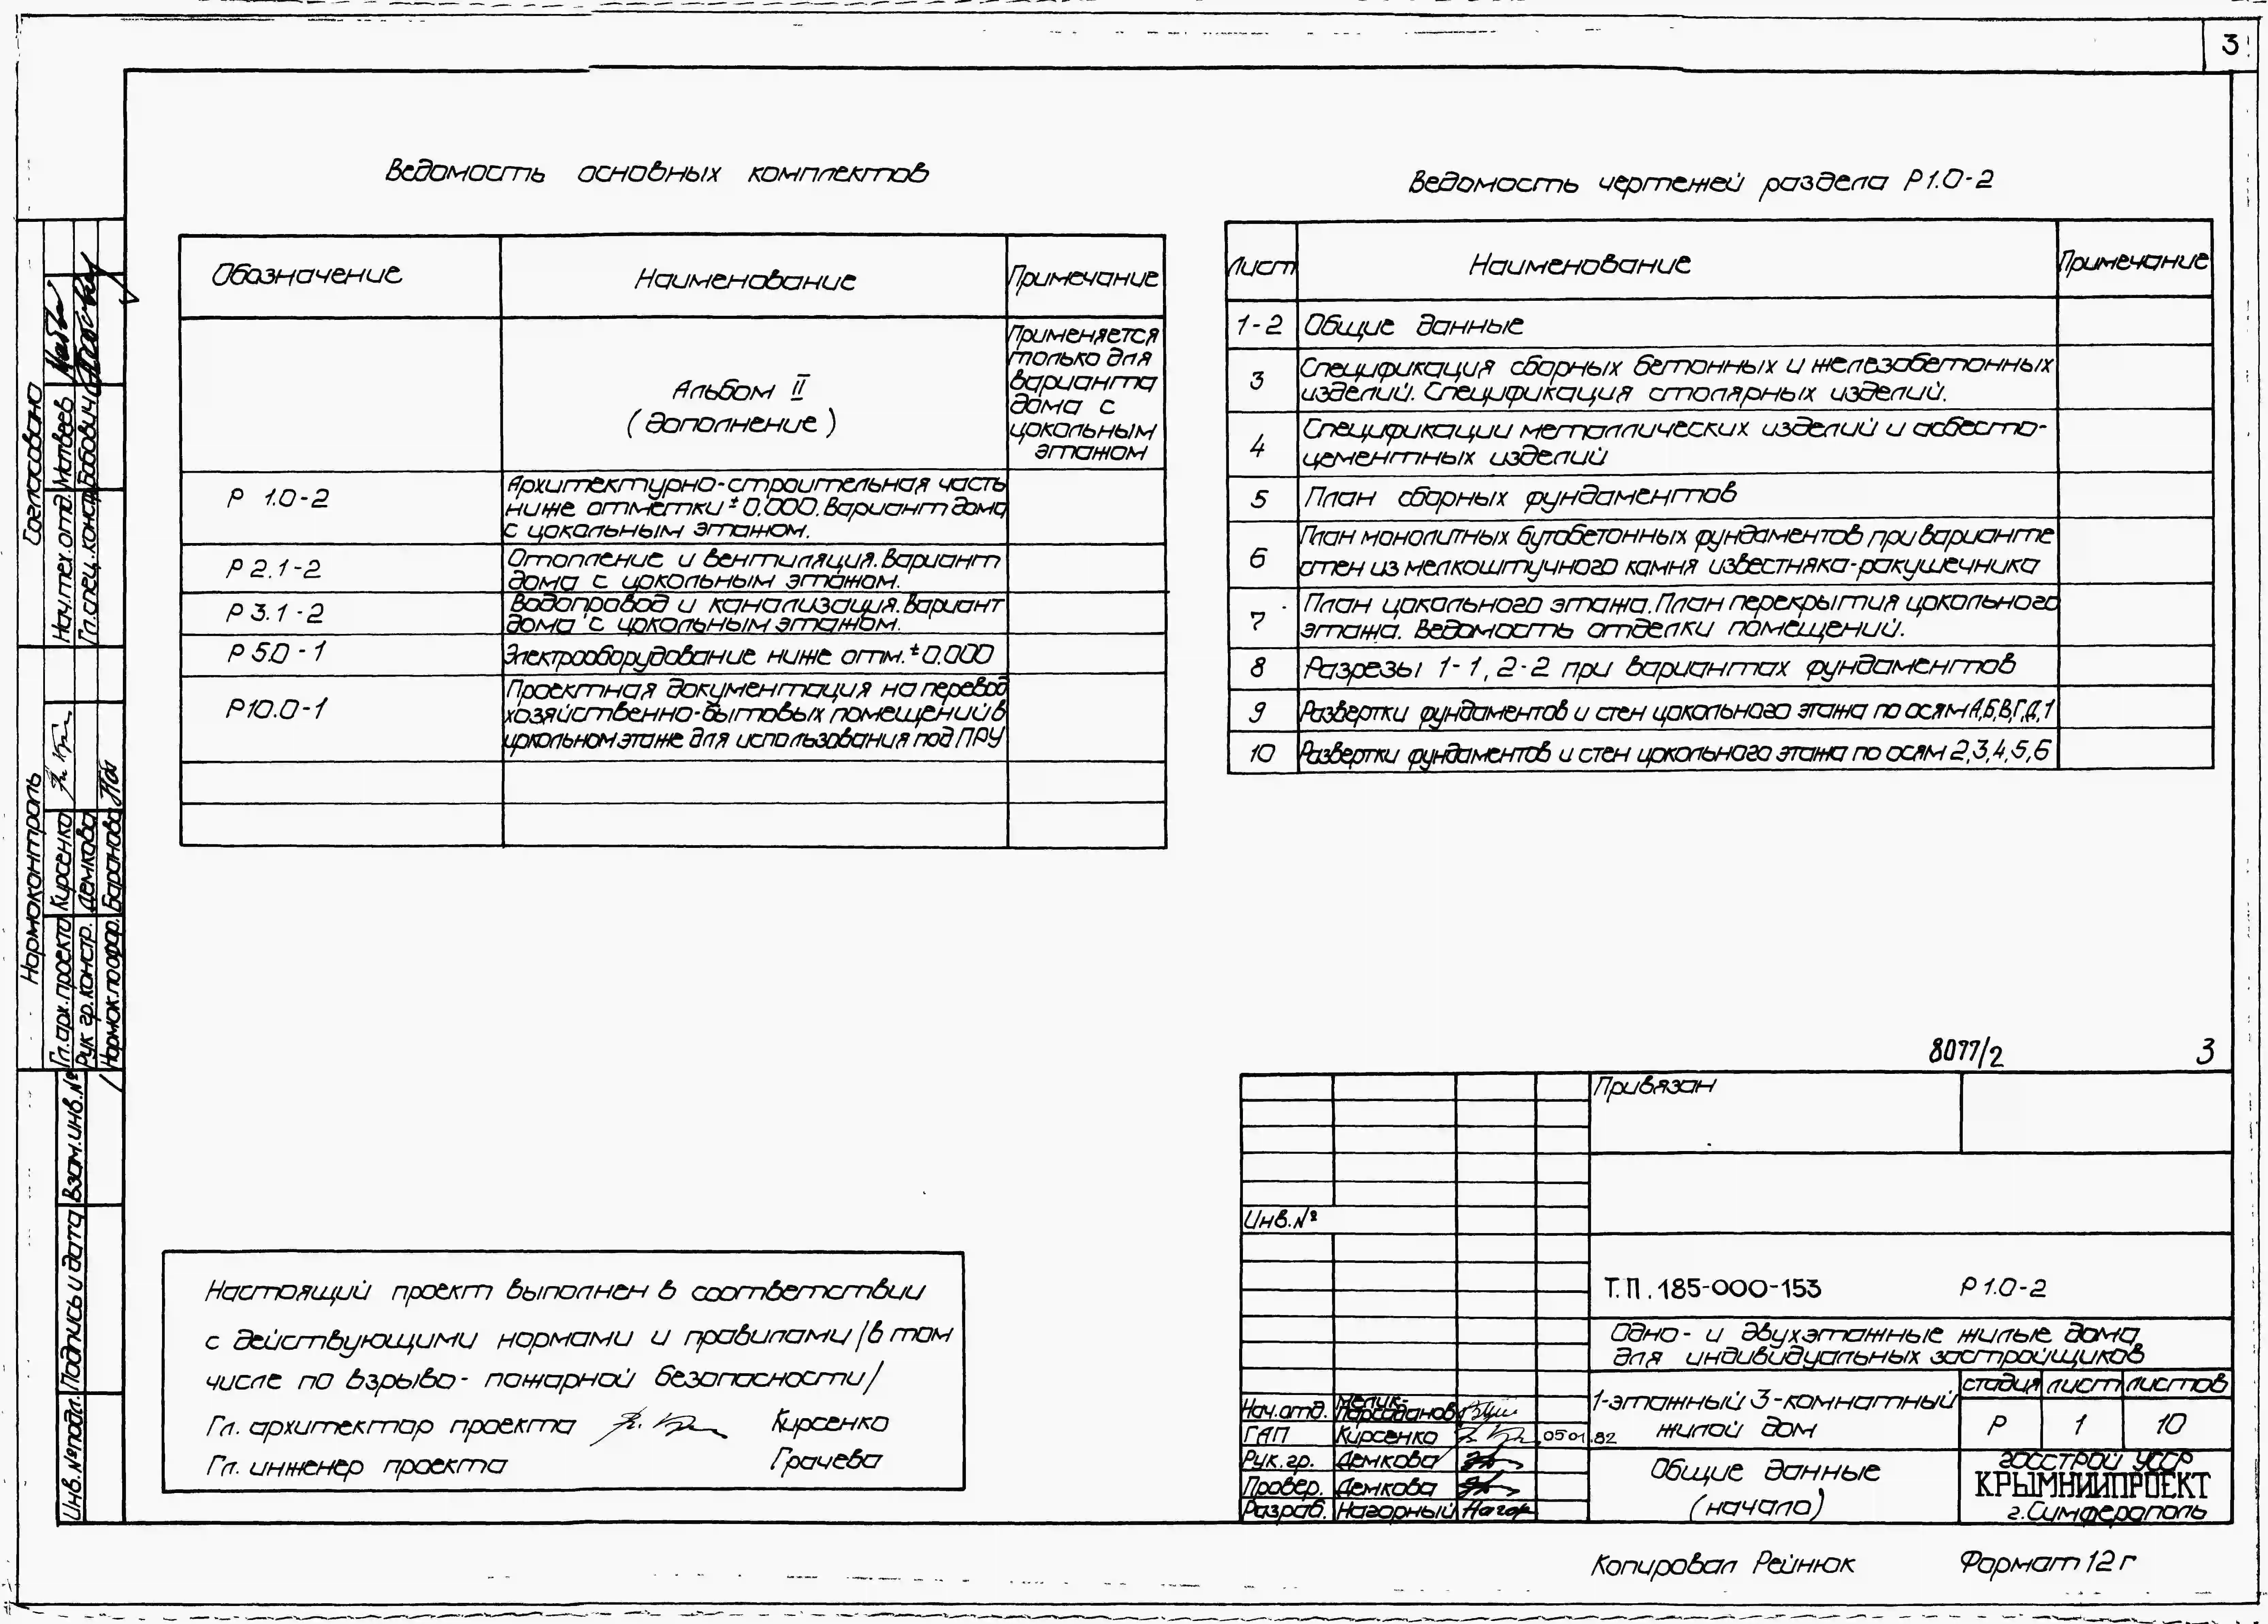 3
Ведомость основных комплектов
Обозначение
Наименование
Примечание
Альбом II
(дополнение)
Применяется
только для
варианта
дома с
цокольным
этажом
Р 1.0-2
Архитектурно-строительная часть
ниже отметки ±0.000. Вариант дома
с цокольным этажом.
Р 2.1-2
Отопление и вентиляция. Вариант
дома с цокольным этажом.
Р 3.1-2
Водопровод и канализация. Вариант
дома с цокольным этажом.
Р 5.0-1
Электрооборудование ниже отм. ±0.000
Р 10.0-1
Проектная документация на перевод
хозяйственно-бытовых помещений в
цокольном этаже для использования под ПРУ
Ведомость чертежей раздела Р 1.0-2
Лист
Наименование
Примечание
1-2
Общие данные
3
Спецификация сборных бетонных и железобетонных
изделий. Спецификация столярных изделий.
4
Спецификации металлических изделий и асбесто-
цементных изделий
5
План сборных фундаментов
6
План монолитных бутобетонных фундаментов при варианте
стен из мелкоштучного камня известняка-ракушечника
7
План цокольного этажа. План перекрытия цокольного
этажа. Ведомость отделки помещений.
8
Разрезы 1-1, 2-2 при вариантах фундаментов
9
Развертки фундаментов и стен цокольного этажа по осям А,Б,В,Г,Д,1
10
Развертки фундаментов и стен цокольного этажа по осям 2,3,4,5,6
Согласовано
Нач.тех.отд. Матвеев
Гл.спец.констр. Бабович
Нормоконтроль
Гл.арх.проекта Кирсенко
Рук гр.констр. Демкова
Баранова
Взам.инв.№
Подпись и дата
Инв.№подл.
Настоящий проект выполнен в соответствии
с действующими нормами и правилами /в том
числе по взрыво- пожарной безопасности/
Гл. архитектор проекта Кирсенко
Гл. инженер проекта Грачева
8077/2 3
Привязан
Инв.№
Т.П. 185-000-153 Р 1.0-2
Одно- и двухэтажные жилые дома
для индивидуальных застройщиков
Нач.отд. Мелик-
Парсаданов
ГАП Кирсенко 05 01.82
Рук.гр. Демкова
Провер. Демкова
Разраб. Нагорный
1-этажный 3-комнатный
жилой дом
стадия лист листов
Р 1 10
Общие данные
(начало)
ГОССТРОЙ УССР
КРЫМНИИПРОЕКТ
г.Симферополь
Копировал Рейнюк Формат 12г